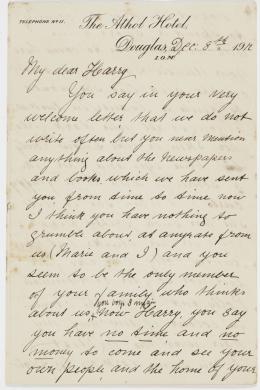 TELEPHONE Nº 11.
The Athol Hotel,
Douglas, Dec. 8th 1912
I.O.M.
My dear Harry
You say in your very
welcome letter that we do not
write often but you never mention
anything about the Newspapers
and books which we have sent
you from time to time now
I think you have nothing to
grumble about, at anyrate from
us (Marie and I) and you
seem to be the only member
of your family who thinks
about us, now Harry, you say
you have no time and no
money to come and see your
own people and the home of your